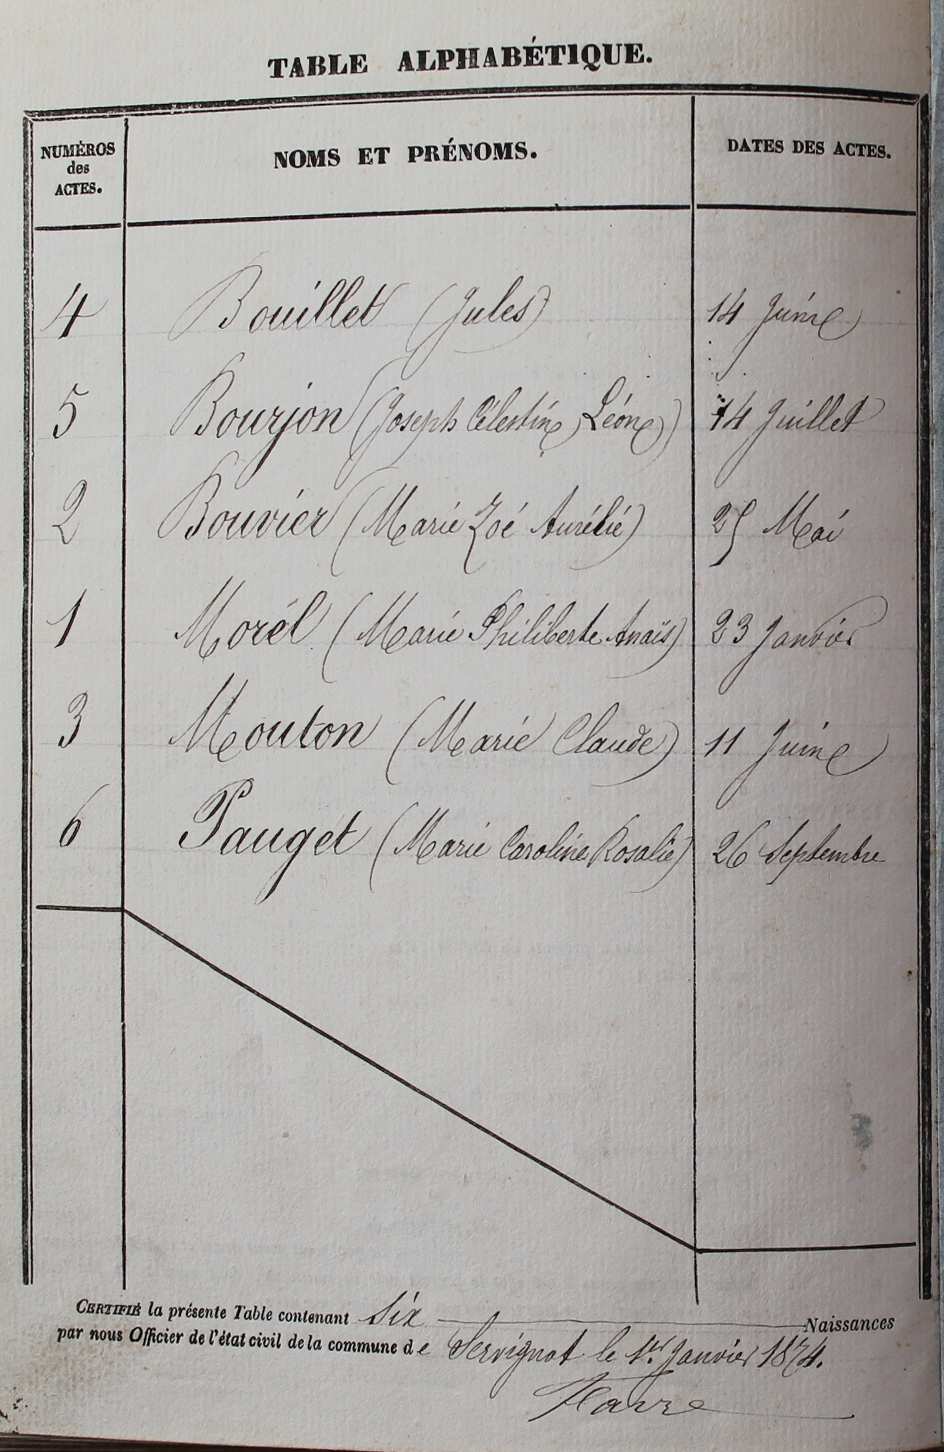 TABLE ALPHABÉTIQUE.
NUMÉROS des ACTES. NOMS ET PRÉNOMS. DATES DES ACTES.
4 Bouillet (Jules) 14 Juin
5 Bourjon (Joseph Célestin, Léon) 14 Juillet
2 Bouvier (Marie Zoé Aurélie) 25 Mai
1 Morél (Marie Philiberte Anaïs) 23 Janvier
3 Mouton (Marie Claude) 11 Juin
6 Pauget (Marie Caroline Rosalie) 26 Septembre
CERTIFIÉ la présente Table contenant Six Naissances
par nous Officier de l'état civil de la commune de Servignat le 1er Janvier 1874.